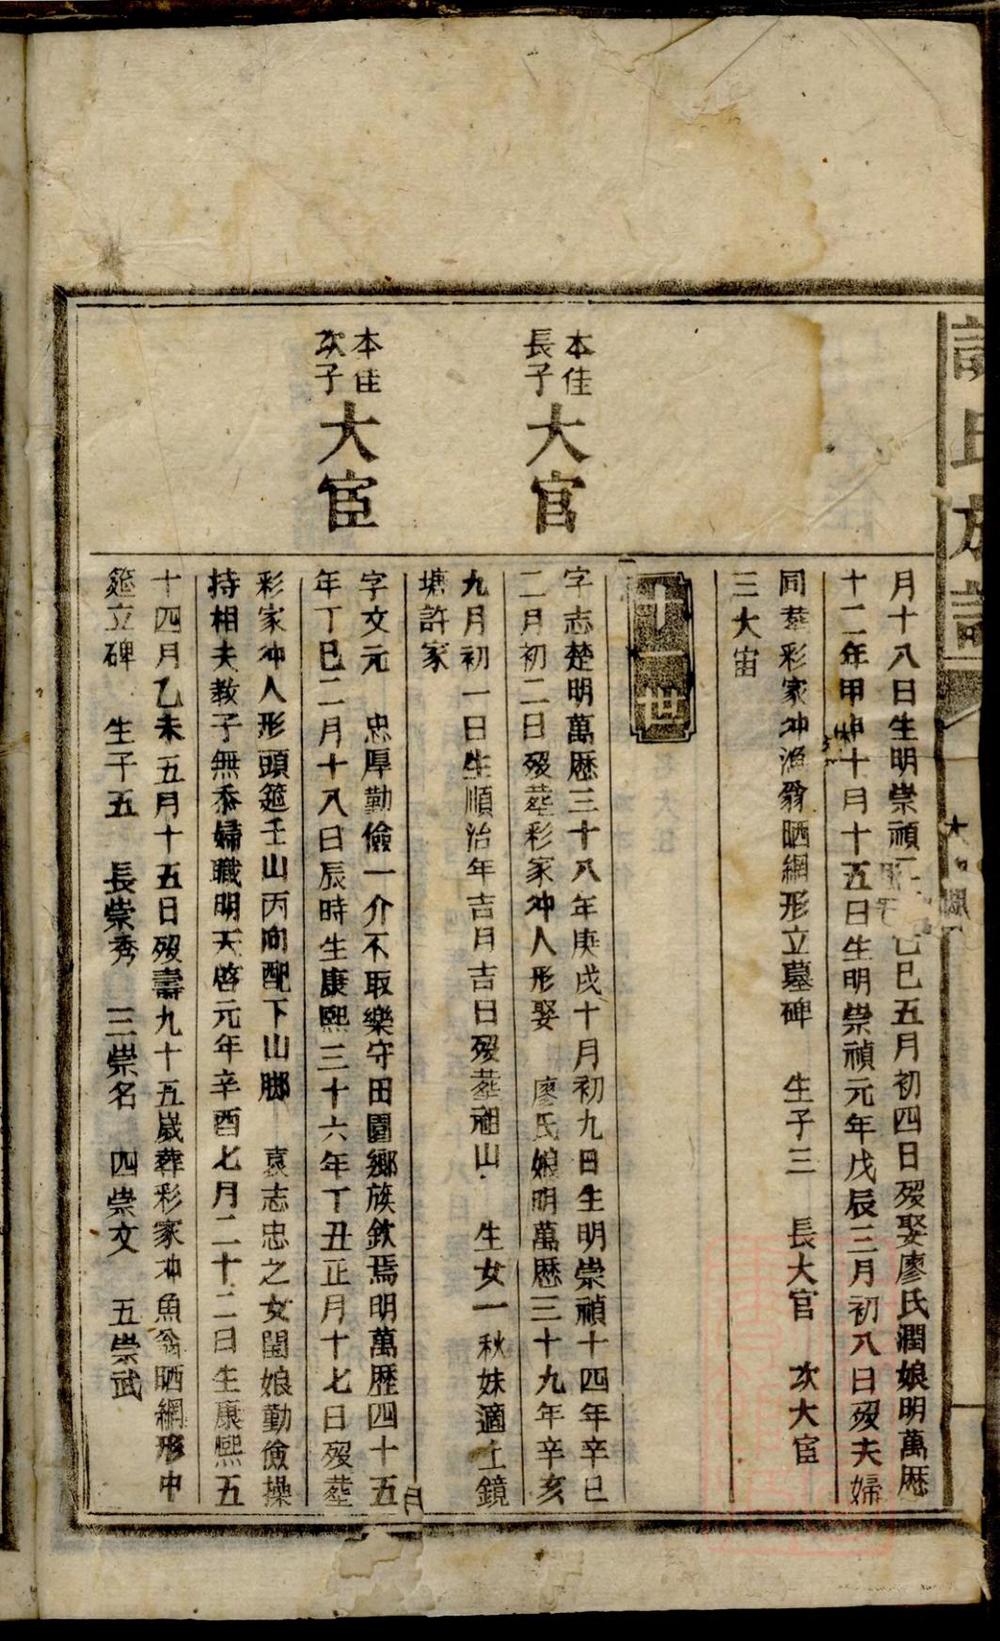 氏族譜
月十八日生明崇禎二己巳五月初四日殁娶廖氏潤娘明萬歷
十二年甲申十月十五日生明崇禎元年戊辰三月初八日殁夫婦
同塟彩家冲漁翁晒網形立墓碑 生子三 長大官 次大宦
三大宙
十一世
本佳長子大官
字志楚明萬歷三十八年庚戌十月初九日生明崇禎十四年辛巳
二月初二日殁塟彩家冲人形娶 廖氏娘明萬歷三十九年辛亥
九月初一日生順治年吉月吉日殁塟祖山 生女一秋妹適上鏡
塘許家
本佳次子大宦
字文元 忠厚勤儉一介不取樂守田園鄉族欽焉明萬歷四十五
年丁巳二月十八日辰時生康熙三十六年丁丑正月十七日殁塟
彩家冲人形頭筵壬山丙向配下山脚 袁志忠之女閏娘勤儉操
持相夫教子無忝婦職明天啓元年辛酉七月二十二日生康熙五
十四月乙未五月十五日殁壽九十五歲葬彩家冲魚翁晒網形中
筵立碑 生子五 長崇秀 三崇名 四崇文 五崇武